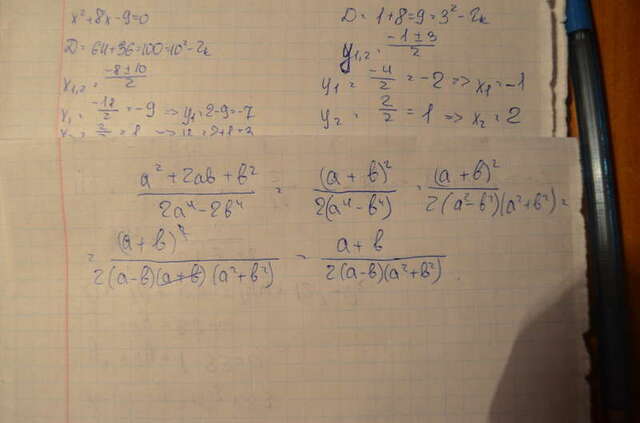 x²+8x-9=0
D=64+36=100=10²-2k
x₁,₂= (-8±10)/2
x₁= -18/2 = -9 => y₁=2-9=-7
D= 1+8=9=3²-2k
y₁,₂= (-1±3)/2
y₁= -4/2 = -2 => x₁=-1
y₂= 2/2 = 1 => x₂= 2
(a²+2ab+b²)/(2a⁴-2b⁴) = (a+b)²/(2(a⁴-b⁴)) = (a+b)²/(2(a²-b²)(a²+b²)) =
= (a+b)²/(2(a-b)(a+b)(a²+b²)) = (a+b)/(2(a-b)(a²+b²))